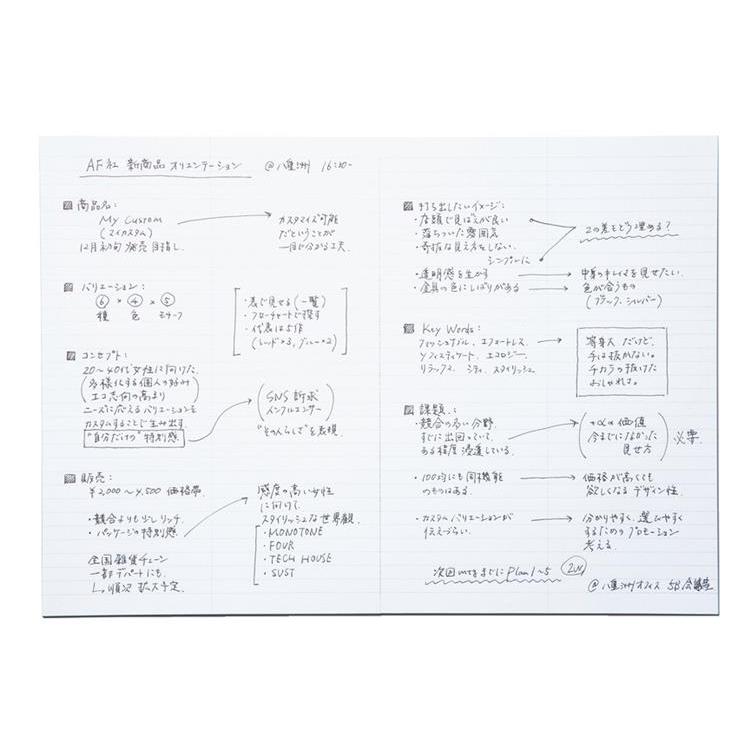 AF社 新商品 オリエンテーション @八重洲 16:30-
商品名:
My Custom
(マイカスタム)
12月初旬 発売目指し.
カスタマイズ可能
だということが
一目で分かる工夫.
バリエーション:
⑥ × ④ × ⑤
種 色 モチーフ
・表で見せる(一覧)
・フローチャートで探す
・代表は5作
(レッド×3, ブルー×2)
コンセプト:
20〜40代女性に向けた.
多様化する個人の好み
エコ志向の高まり
ニーズに応えるバリエーションを
カスタムすることで生み出す.
"自分だけの"特別感
SNS訴求
インフルエンサー
"その人らしさ"を表現
販売:
¥2,000〜4,500 価格帯.
・競合よりも少しリッチ
・パッケージの特別感
全国雑貨チェーン
一部デパートにも.
順次 拡大予定.
感度の高い女性
に向けて
スタイリッシュな世界観.
・MONOTONE
・FOUR
・TECH HOUSE
・SUST
打ち出したいイメージ:
・店頭で見ばえが良い
・落ちついた雰囲気
・奇抜な見え方をしない.
シンプルに
この差をどう埋める?
・透明感を生かす
中身のキレイさを見せたい.
・金具の色にしばりがある
色が合うもの
(ブラック, シルバー)
Key Words:
ファッショナブル, エフォートレス.
ソフィスティケート, エコロジー.
リラックス, シティ, スタイリッシュ
等身大だけど,
手は抜かない。
チカラの抜けた
おしゃれさ。
課題:
・競合の多い分野
すぐに出回っていて,
ある程度 浸透している.
+α 価値
今までになかった
見せ方
必要.
・100均にも同機能
のものはある.
価格が高くても
欲しくなる デザイン性.
・カスタムバリエーションが
伝えづらい.
分かりやすく, 選びやすく
するためのプロモーション
考える.
次回mtgまでに Plan 1〜5
@八重洲オフィス 5B会議室